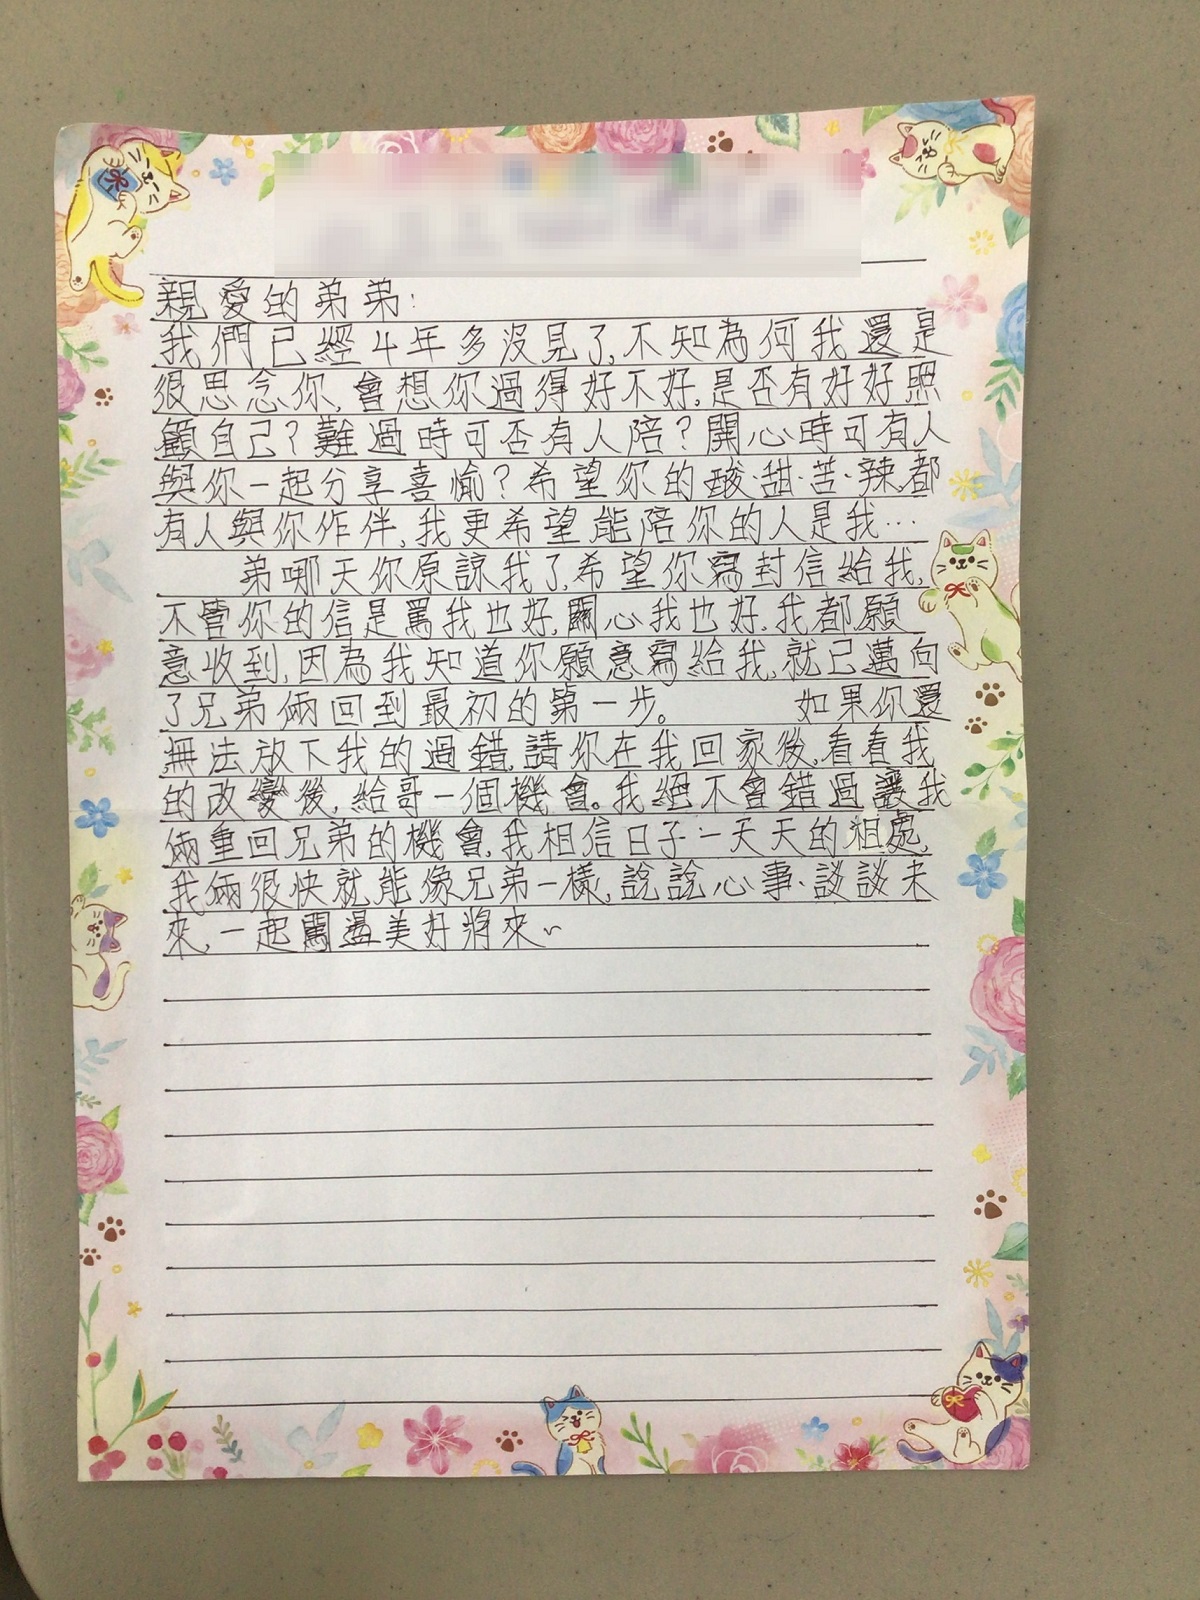 親愛的弟弟:
我們已經4年多沒見了,不知為何我還是
很思念你,會想你過得好不好,是否有好好照
顧自己?難過時可否有人陪?開心時可有人
與你一起分享喜愉?希望你的酸.甜.苦.辣.都
有人與你作伴,我更希望能陪你的人是我…
弟哪天你原諒我了,希望你寫封信給我,
不管你的信是罵我也好,關心我也好,我都願
意收到,因為我知道你願意寫給我,就已邁向
了兄弟倆回到最初的第一步。 如果你還
無法放下我的過錯,請你在我回家後,看看我
的改變後,給哥一個機會。我絕不會錯過讓我
倆重回兄弟的機會,我相信日子一天天的相處,
我倆很快就能像兄弟一樣,說說心事.談談未
來,一起闖盪美好將來~